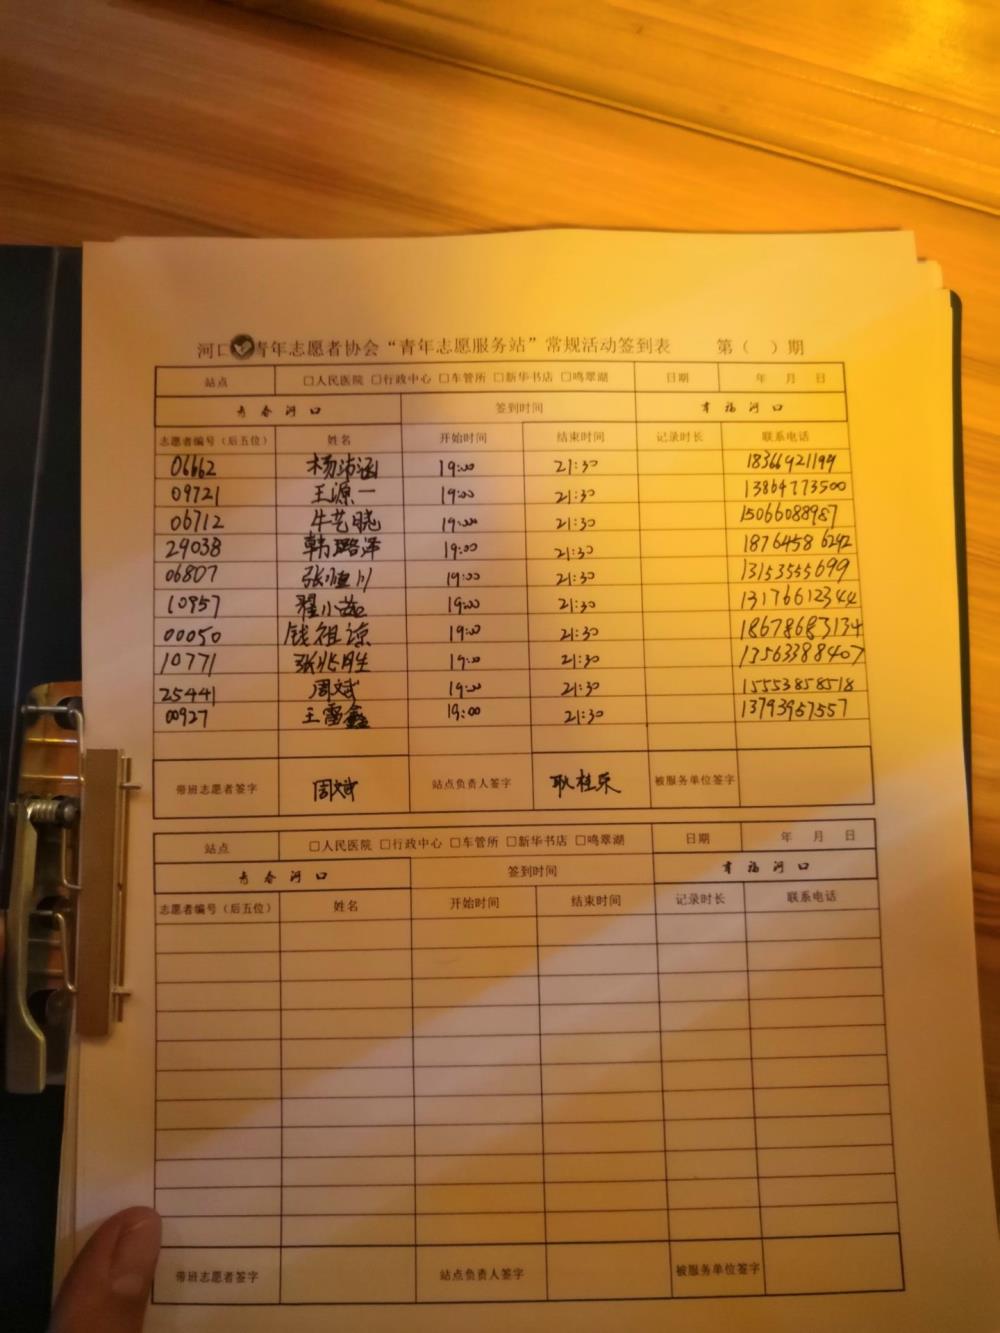 河口青年志愿者协会“青年志愿服务站”常规活动签到表 第（ ）期
站点 □人民医院 □行政中心 □车管所 □新华书店 □鸣翠湖 日期 年 月 日
青春河口 签到时间 幸福河口
志愿者编号（后五位） 姓名 开始时间 结束时间 记录时长 联系电话
06662 杨沛涵 19:00 21:30 18366921194
09721 王源一 19:00 21:30 13864773500
06712 牛艺晓 19:00 21:30 15066088987
29038 韩璐泽 19:00 21:30 18764586292
06807 张恒川 19:00 21:30 13153555699
10957 翟小茹 19:00 21:30 13176612344
00050 钱祖谅 19:00 21:30 18678683134
10771 张兆胜 19:00 21:30 13563388407
25441 周斌 19:00 21:30 15553858518
00927 王雷鑫 19:00 21:30 13793957557
带班志愿者签字 周斌 站点负责人签字 耿桂乐 被服务单位签字
站点 □人民医院 □行政中心 □车管所 □新华书店 □鸣翠湖 日期 年 月 日
青春河口 签到时间 幸福河口
志愿者编号（后五位） 姓名 开始时间 结束时间 记录时长 联系电话
带班志愿者签字 站点负责人签字 被服务单位签字